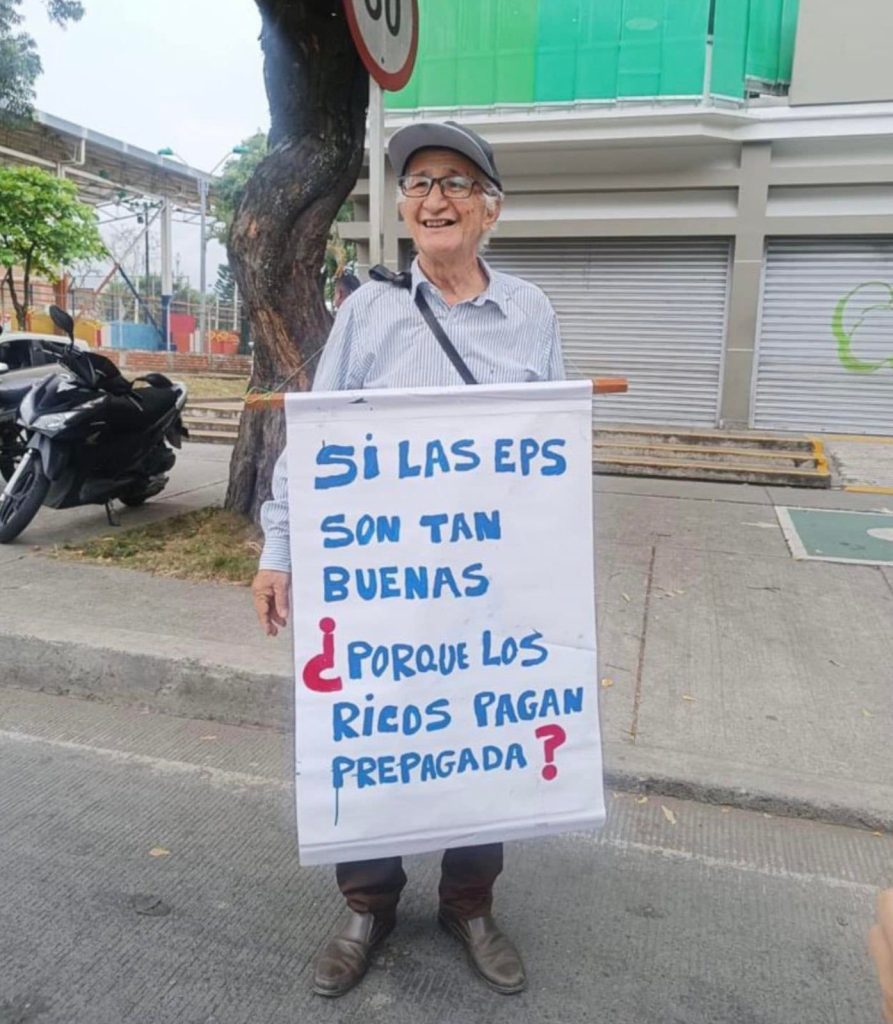 SI LAS EPS
SON TAN
BUENAS
¿PORQUE LOS
RICOS PAGAN
PREPAGADA?